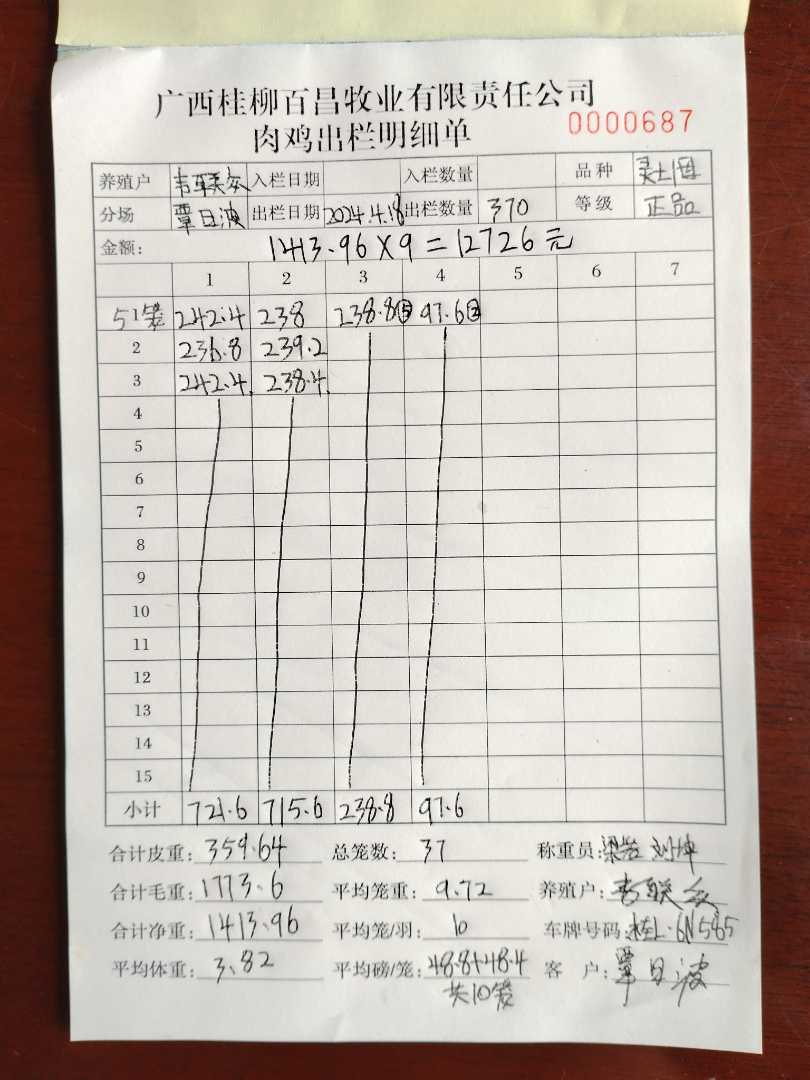 广西桂柳百昌牧业有限责任公司
肉鸡出栏明细单 0000687
养殖户 韦联众 入栏日期 入栏数量 品种 灵土母
分场 覃日波 出栏日期 2024.4.18 出栏数量 370 等级 正品
金额: 1413.96×9=12726元
1 2 3 4 5 6 7
5 1笼 242.4 238 238.8⑤ 97.6②
2 236.8 239.2
3 242.4 238.4
4
5
6
7
8
9
10
11
12
13
14
15
小计 721.6 715.6 238.8 97.6
合计皮重: 359.64 总笼数: 37 称重员: 刘坤
合计毛重: 1773.6 平均笼重: 9.72 养殖户: 韦联众
合计净重: 1413.96 平均笼/羽: 10 车牌号码: 桂L·6N585
平均体重: 3.82 平均磅/笼: 48.8+48.4 客户: 覃日波
共10笼